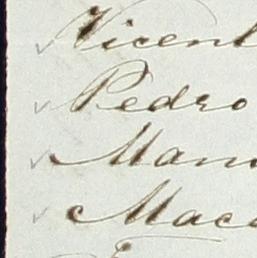 Vicent
Pedro
Man
Mac